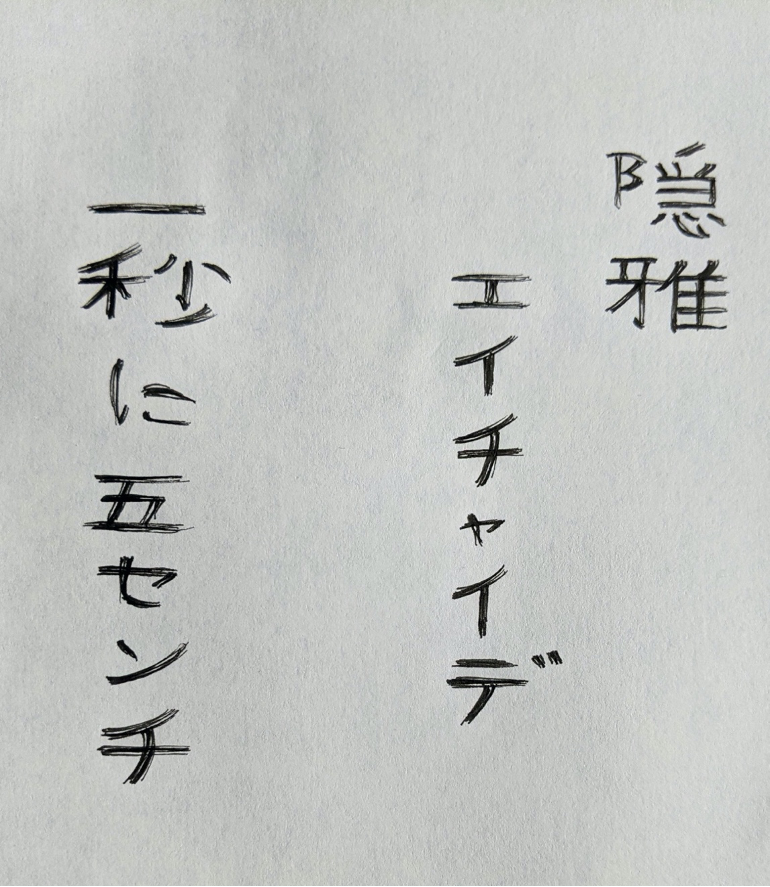 隠雅
エイチャイデ
一秒に五センチ